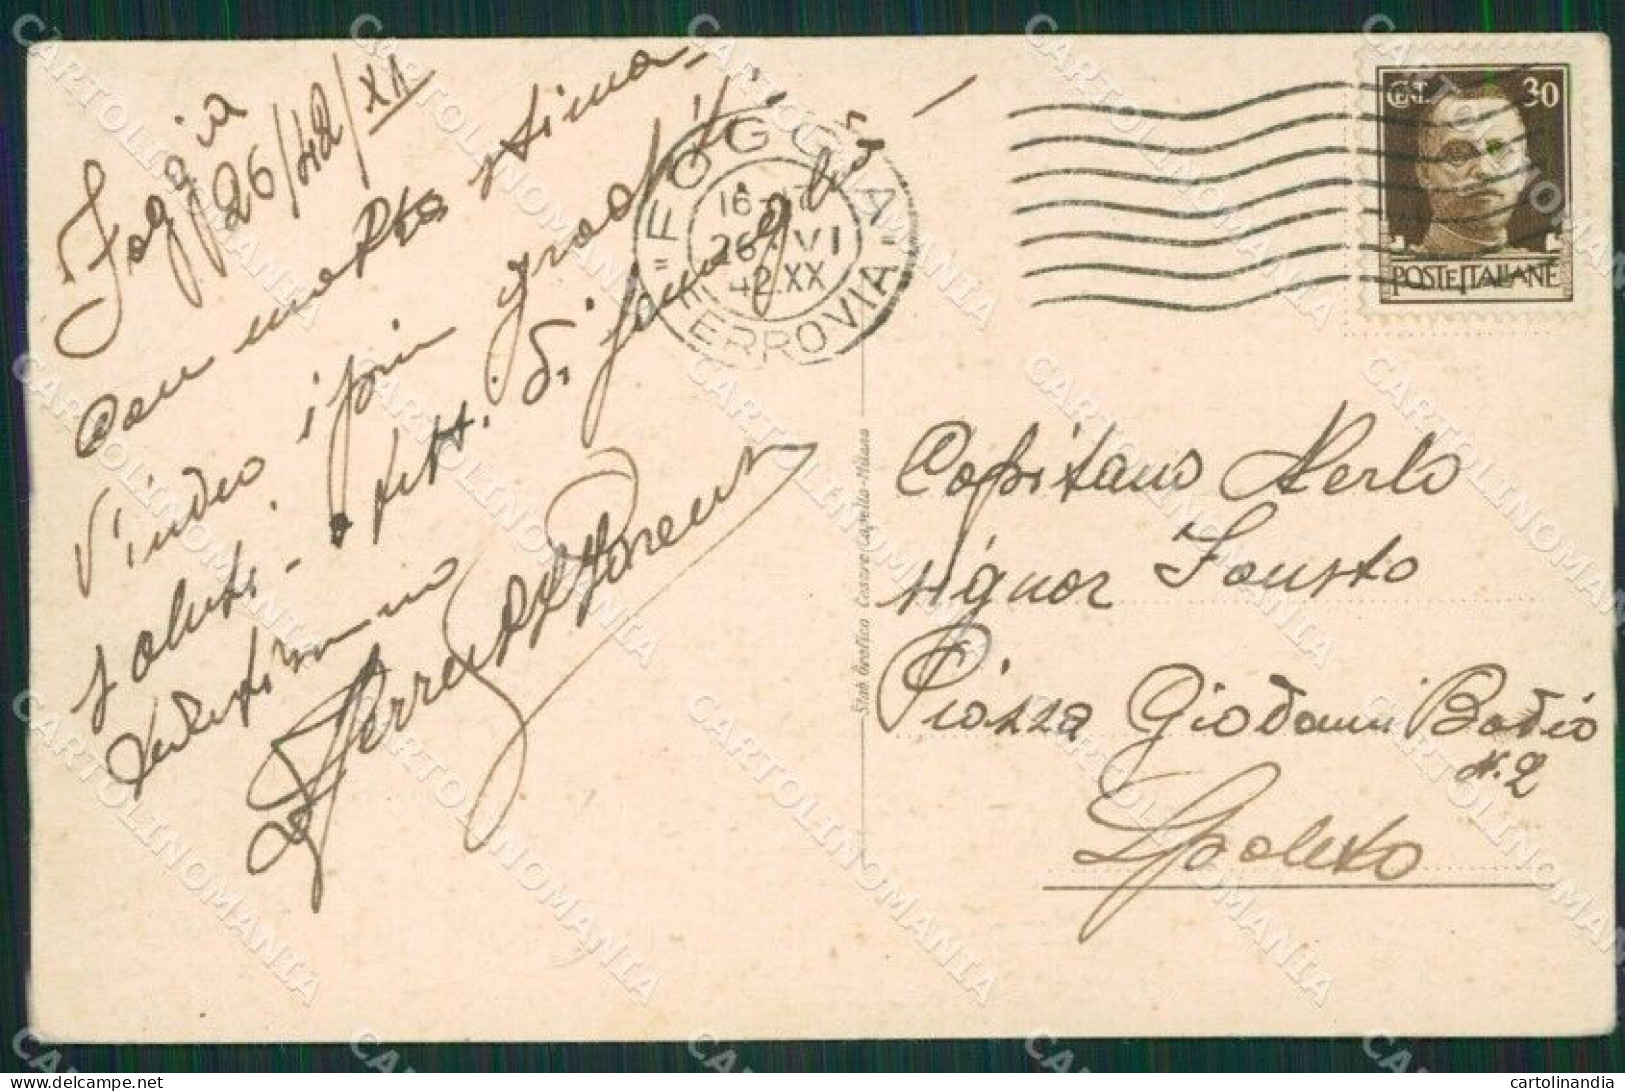 Foggia
26/42/XX
Con molta stima
V'invio i più graditi
saluti - e fett. di famiglia
Vostrissimo
"FOGGIA"
16-17
26. VI
42.XX
FERROVIA
CENT. 30
POSTE ITALIANE
Capitano Merlo
signor Fausto
Piazza Giodanni Bodio
N. 2
Spoleto
Stab. Grafico Cesare Capello-Milano
CARTOLINOMANIA
cartolinandia